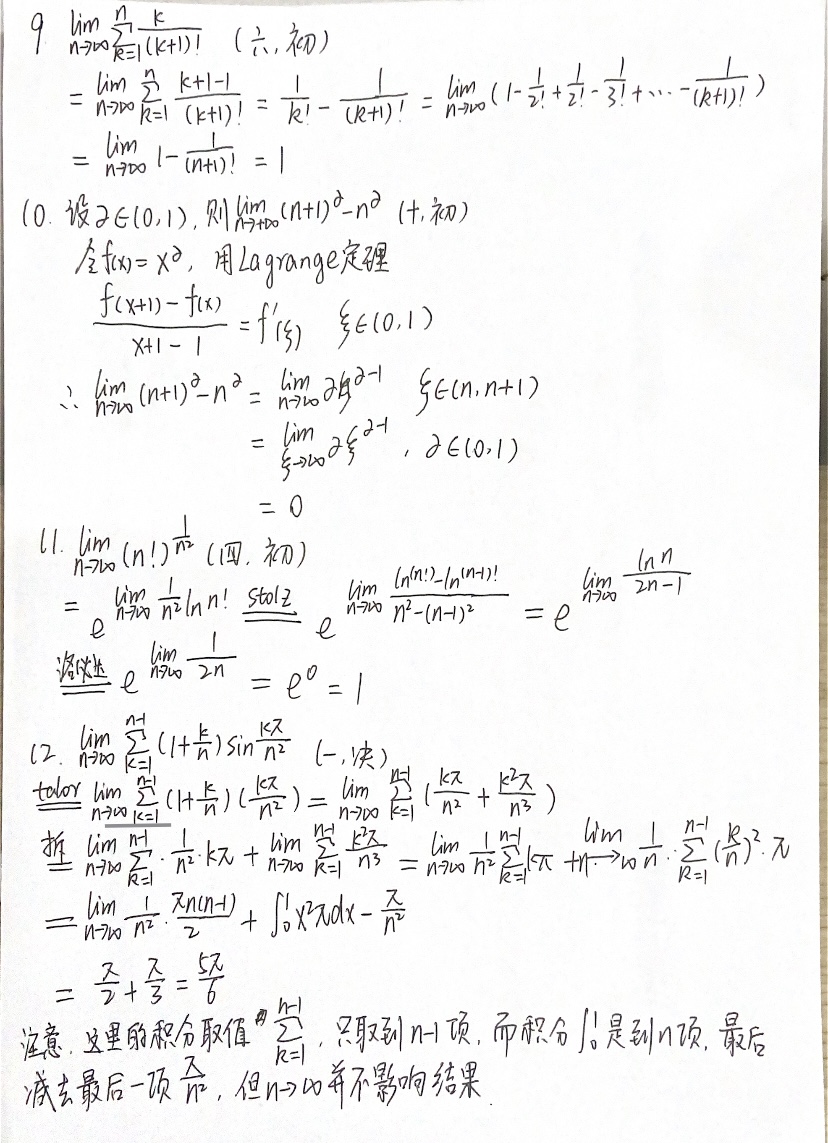 9 lim_{n→∞} Σ_{k=1}^{n} k/(k+1)! (六,初)
= lim_{n→∞} Σ_{k=1}^{n} (k+1-1)/(k+1)! = 1/k! - 1/(k+1)! = lim_{n→∞} (1-1/2!+1/2!-1/3!+...-1/(k+1)!)
= lim_{n→∞} 1-1/(n+1)! = 1
10. 设∂∈(0,1), 则lim_{n→+∞} (n+1)^∂-n^∂ (十,初)
令f(x)=x^∂, 用Lagrange定理
(f(x+1)-f(x))/(x+1-1) = f'(ξ) ξ∈(0,1)
∴ lim_{n→∞} (n+1)^∂-n^∂ = lim_{n→∞} ∂ξ^{∂-1} ξ∈(n,n+1)
= lim_{ξ→∞} ∂ξ^{∂-1}, ∂∈(0,1)
= 0
11. lim_{n→∞} (n!)^{1/n²} (四,初)
= e^{lim_{n→∞} 1/n² ln n!} stolz e^{lim_{n→∞} (ln(n!)-ln(n-1)!)/(n²-(n-1)²)} = e^{lim_{n→∞} ln n/(2n-1)}
洛必达 e^{lim_{n→∞} 1/2n} = e^0 = 1
12. lim_{n→∞} Σ_{k=1}^{n-1} (1+k/n) sin kπ/n² (一,决)
talor lim_{n→∞} Σ_{k=1}^{n-1} (1+k/n)(kπ/n²) = lim_{n→∞} Σ_{k=1}^{n-1} (kπ/n² + k²π/n³)
拆 lim_{n→∞} Σ_{k=1}^{n-1} · 1/n² · kπ + lim_{n→∞} Σ_{k=1}^{n-1} k²π/n³ = lim_{n→∞} 1/n² Σ_{k=1}^{n-1} kπ + lim_{n→∞} 1/n · Σ_{k=1}^{n-1} (k/n)² · π
= lim_{n→∞} 1/n² · πn(n-1)/2 + ∫_0^1 x²πdx - π/n²
= π/2 + π/3 = 5π/6
注意, 这里的积分取值的 Σ_{k=1}^{n-1}, 只取到n-1项, 而积分∫_0^1是到n项, 最后
减去最后一项 π/n², 但n→∞并不影响结果